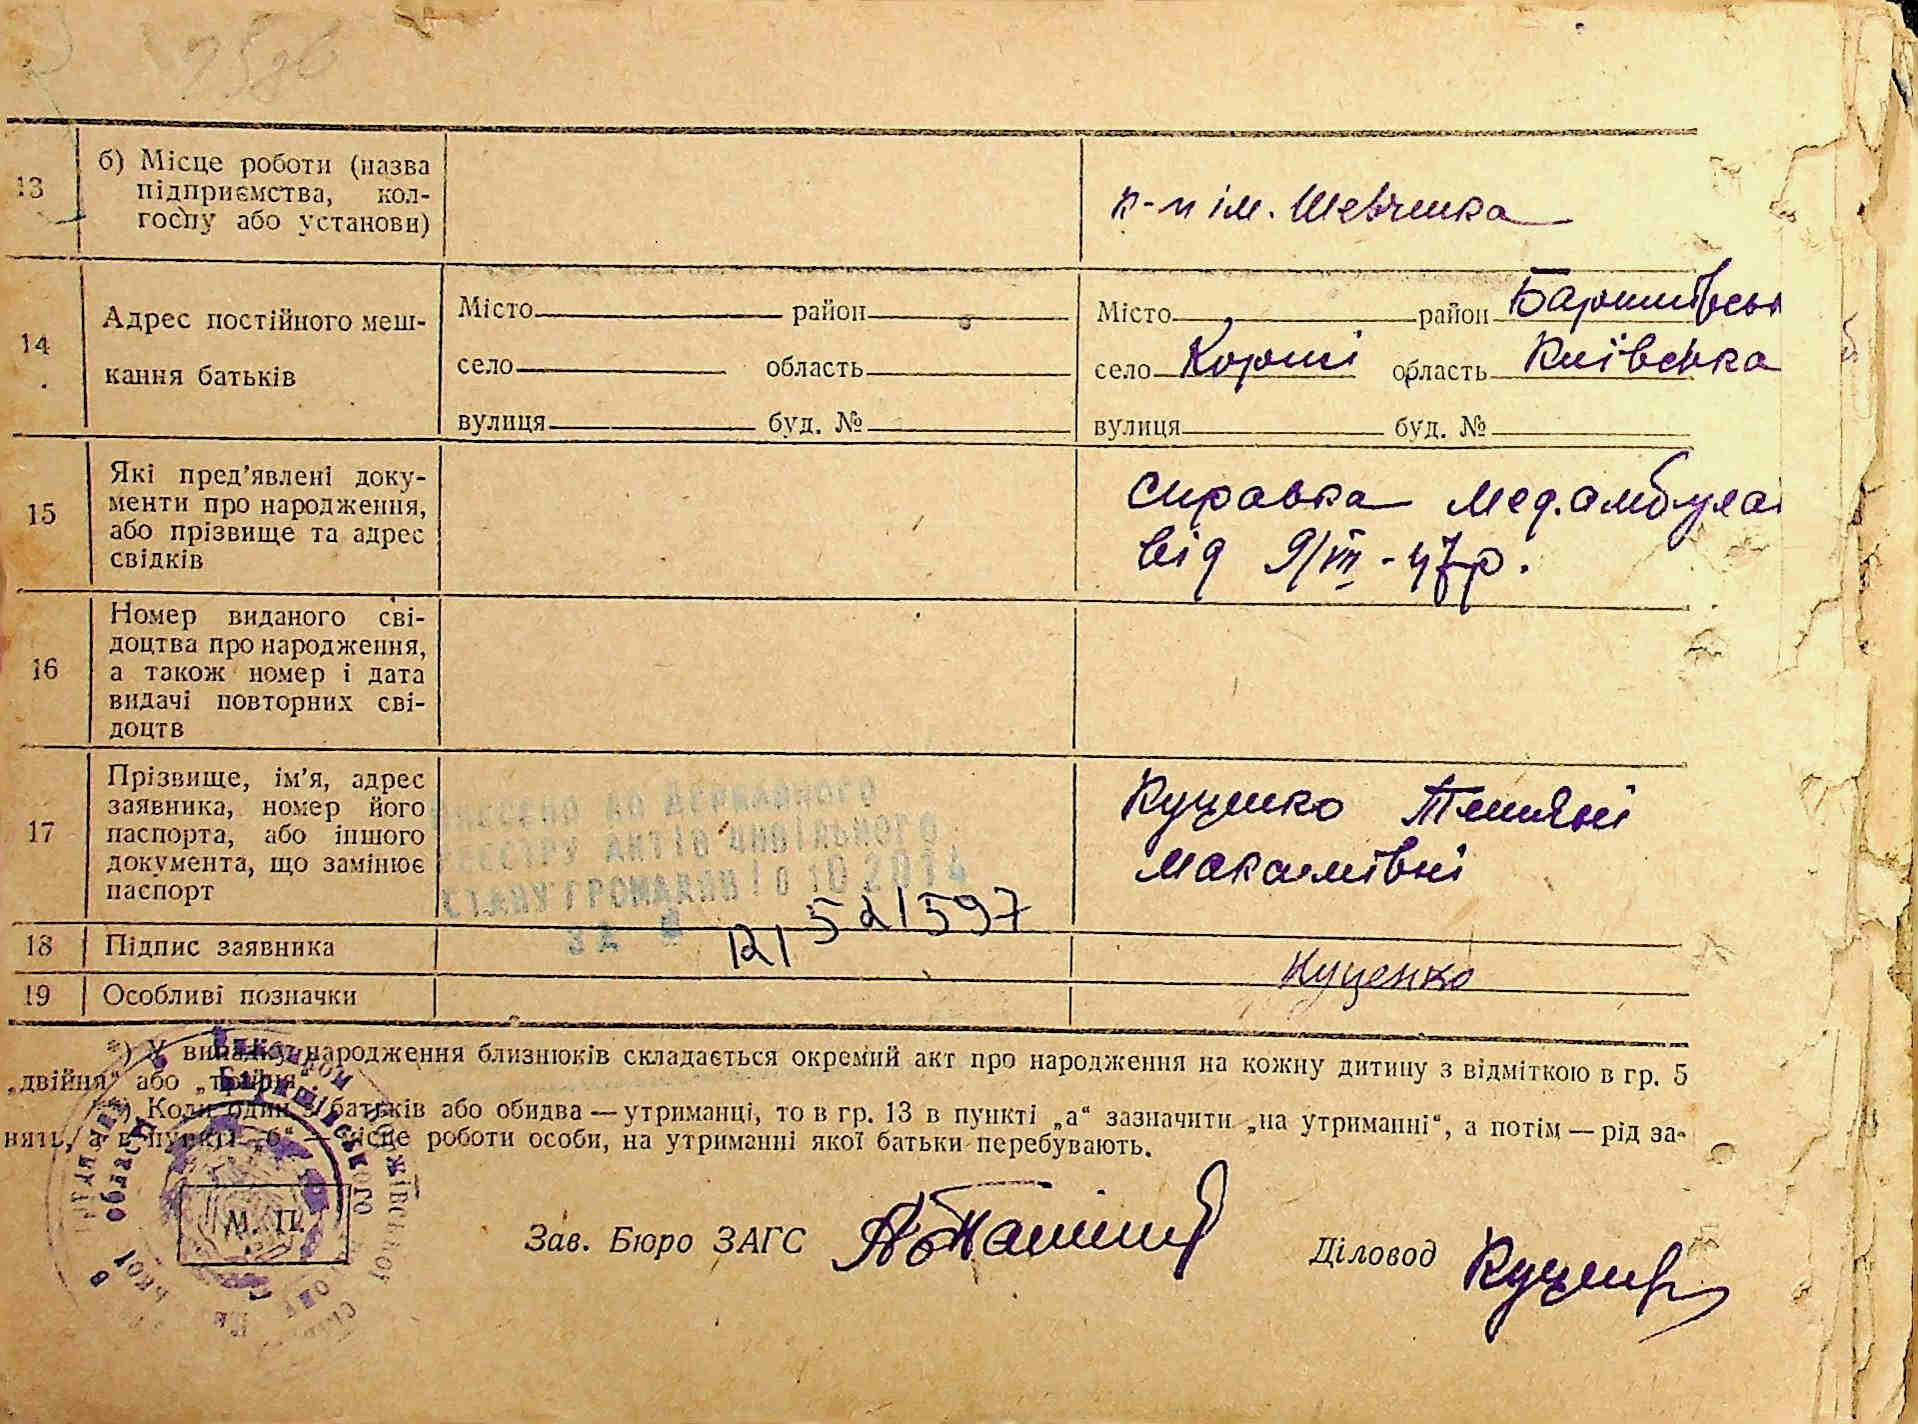 13
б) Місце роботи (назва
підприємства, кол-
госпу або установи)
к-п ім. Шевченка
14
Адрес постійного меш-
кання батьків
Місто район
село область
вулиця буд. №
Місто район Баришівськ
село Коржі область Київська
вулиця буд. №
15
Які пред'явлені доку-
менти про народження,
або прізвище та адрес
свідків
справка мед.амбула
від 9/III-47р.
16
Номер виданого сві-
доцтва про народження,
а також номер і дата
видачі повторних сві-
доцтв
17
Прізвище, ім'я, адрес
заявника, номер його
паспорта, або іншого
документа, що замінює
паспорт
внесено до державного
реєстру актів цивільного
стану громадян 10 10 2014
за №
Куценко Тетяні
Макаліvні
18
Підпис заявника
Куценко
19
Особливі позначки
*) У випадку народження близнюків складається окремий акт про народження на кожну дитину з відміткою в гр. 5
„двійня“ або „трійня“.
**) Коли один з батьків або обидва — утриманці, то в гр. 13 в пункті „а“ зазначити „на утриманні“, а потім — рід за-
нять, а в пункті „б“ — місце роботи особи, на утриманні якої батьки перебувають.
М. П.
Зав. Бюро ЗАГС
Діловод Куценко